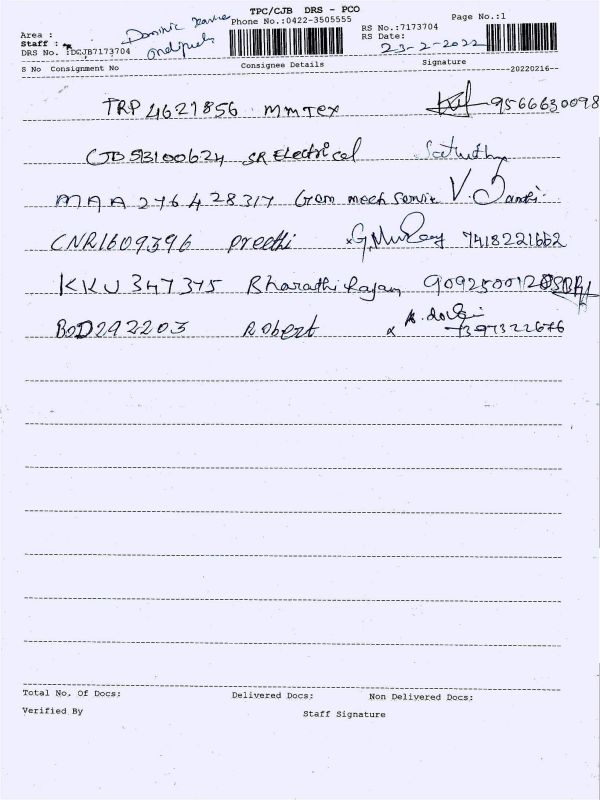 TPC/CJB DRS - PCO
Area : Dominic Phone No.:0422-3505555 RS No.:7173704 Page No.:1
Staff : RS Date: 23-2-2022
DRS No. :DCJB7173704
S No Consignment No Consignee Details Signature --20220216--
TRP 4621856 mmTex 9566630098
513100624 SR Electrical
MAA 276428317 Gem mech Service V.
CNR1609396 Preethi G. 7418221662
KKU 347375 Bharathi Rajan
BOD292203 Robert
Total No. Of Docs: Delivered Docs: Non Delivered Docs:
Verified By Staff Signature